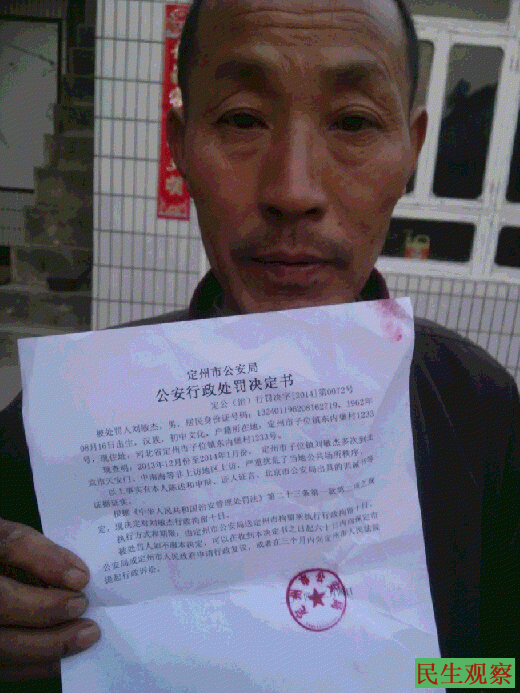 定州市公安局
公安行政处罚决定书
定公（治）行罚决字[2014]第0072号
被处罚人刘敏杰，男，居民身份证号码：132401196208162719，1962年
08月16日出生，汉族，初中文化，户籍所在地：定州市子位镇东内堡村1233
号，现住址：河北省定州市子位镇东内堡村1233号。
现查明：2013年12月份至2014年1月份，定州市子位镇刘敏杰多次到北
京市天安门、中南海等非上访地区上访，严重扰乱了当地公共场所秩序。
以上事实有本人陈述和申辩、证人证言、北京市公安局出具的训诫书等
证据证实。
根据《中华人民共和国治安管理处罚法》第二十三条第一款第二项之规
定，现决定对刘敏杰行政拘留十日。
执行方式和期限：由定州市公安局送定州市拘留所执行行政拘留十日。
被处罚人如不服本决定，可以在收到本决定书之日起六十日内向保定市
公安局或定州市人民政府申请行政复议，或者在三个月内向定州市人民法院
提起行政诉讼。
定州市公安局
民生观察